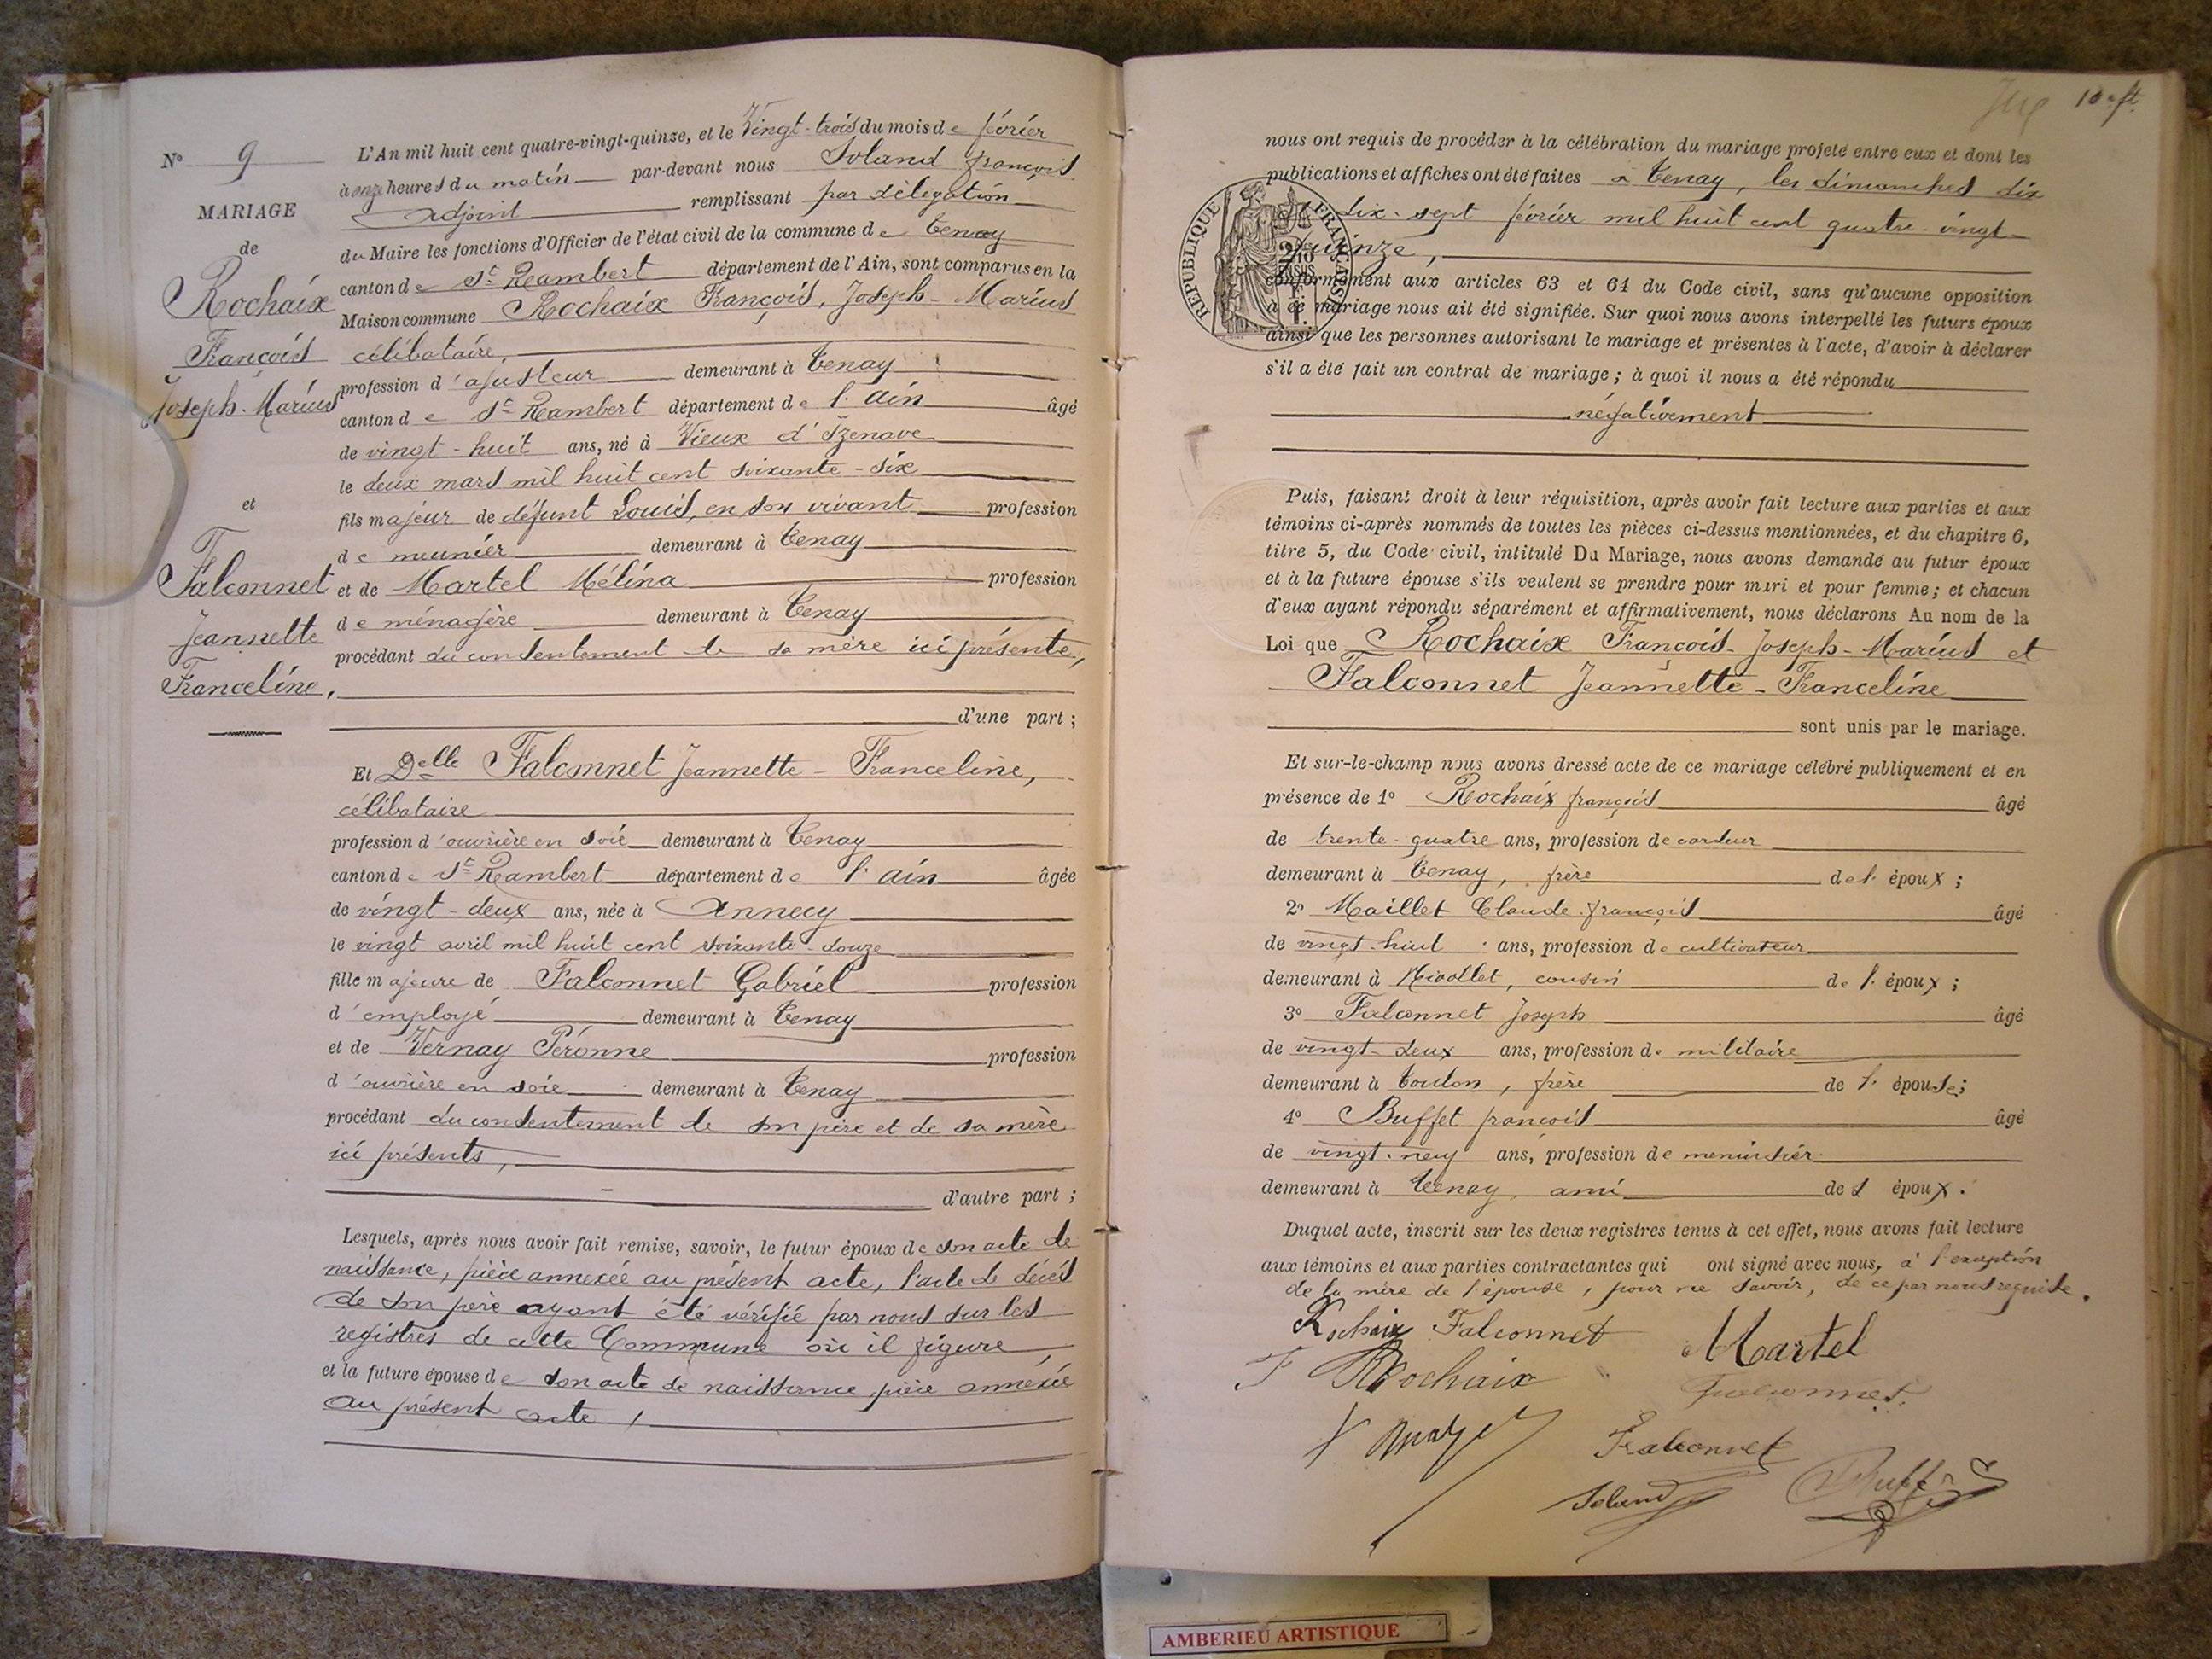 N° 9
MARIAGE
de
Rochaix
François
Joseph-Marius
et
Falconnet
Jeannette
Franceline,
L'An mil huit cent quatre-vingt-quinze, et le Vingt-trois du mois de février
à onze heures du matin par-devant nous Soland françois
adjoint remplissant par délégation
du Maire les fonctions d'Officier de l'état civil de la commune de Tenay
canton de St Rambert département de l'Ain, sont comparus en la
Maison commune Rochaix François, Joseph-Marius
célibataire,
profession d'ajusteur demeurant à Tenay
canton de St Rambert département de l'Ain âgé
de vingt-huit ans, né à Vieux d'Izenave
le deux mars mil huit cent soixante-six
fils majeur de défunt Louis, en son vivant profession
de meunier demeurant à Tenay
et de Martel Mélina profession
de ménagère demeurant à Tenay
procédant du consentement de sa mère ici présente,
d'une part ;
Et Delle Falconnet Jeannette-Franceline,
célibataire
profession d'ouvrière en soie demeurant à Tenay
canton de St Rambert département de l'Ain âgée
de vingt-deux ans, née à Annecy
le vingt avril mil huit cent soixante-douze
fille majeure de Falconnet Gabriel profession
d'employé demeurant à Tenay
et de Vernay Péronne profession
d'ouvrière en soie demeurant à Tenay
procédant du consentement de son père et de sa mère
ici présents,
d'autre part ;
Lesquels, après nous avoir fait remise, savoir, le futur époux de son acte de
naissance, pièce annexée au présent acte, l'acte de décès
de son père ayant été vérifié par nous sur les
registres de cette Commune où il figure
et la future épouse de son acte de naissance pièce annexée
au présent acte,
nous ont requis de procéder à la célébration du mariage projeté entre eux et dont les
publications et affiches ont été faites à Tenay, les dimanches dix
et dix-sept février mil huit cent quatre-vingt-
quinze,
RÉPUBLIQUE FRANÇAISE
conformément aux articles 63 et 64 du Code civil, sans qu'aucune opposition
à ce mariage nous ait été signifiée. Sur quoi nous avons interpellé les futurs époux
ainsi que les personnes autorisant le mariage et présentes à l'acte, d'avoir à déclarer
s'il a été fait un contrat de mariage ; à quoi il nous a été répondu
négativement
Puis, faisant droit à leur réquisition, après avoir fait lecture aux parties et aux
témoins ci-après nommés de toutes les pièces ci-dessus mentionnées, et du chapitre 6,
titre 5, du Code civil, intitulé Du Mariage, nous avons demandé au futur époux
et à la future épouse s'ils veulent se prendre pour mari et pour femme ; et chacun
d'eux ayant répondu séparément et affirmativement, nous déclarons Au nom de la
Loi que Rochaix François-Joseph-Marius et
Falconnet Jeannette-Franceline
sont unis par le mariage.
Et sur-le-champ nous avons dressé acte de ce mariage célébré publiquement et en
présence de 1° Rochaix françois âgé
de trente-quatre ans, profession de cardeur
demeurant à Tenay, frère de l'époux ;
2° Maillet Claude-françois âgé
de vingt-huit ans, profession de cultivateur
demeurant à Nivollet, cousin de l'époux ;
3° Falconnet Joseph âgé
de vingt-deux ans, profession de militaire
demeurant à Toulon, frère de l'épouse ;
4° Buffet françois âgé
de vingt-neuf ans, profession de menuisier
demeurant à Tenay, ami des époux.
Duquel acte, inscrit sur les deux registres tenus à cet effet, nous avons fait lecture
aux témoins et aux parties contractantes qui ont signé avec nous, à l'exception
de la mère de l'épouse, pour ne savoir, de ce par nous requise.
Rochaix Falconnet Martel
F Rochaix Falconnet
Falconnet
Soland Buffet
AMBERIEU ARTISTIQUE